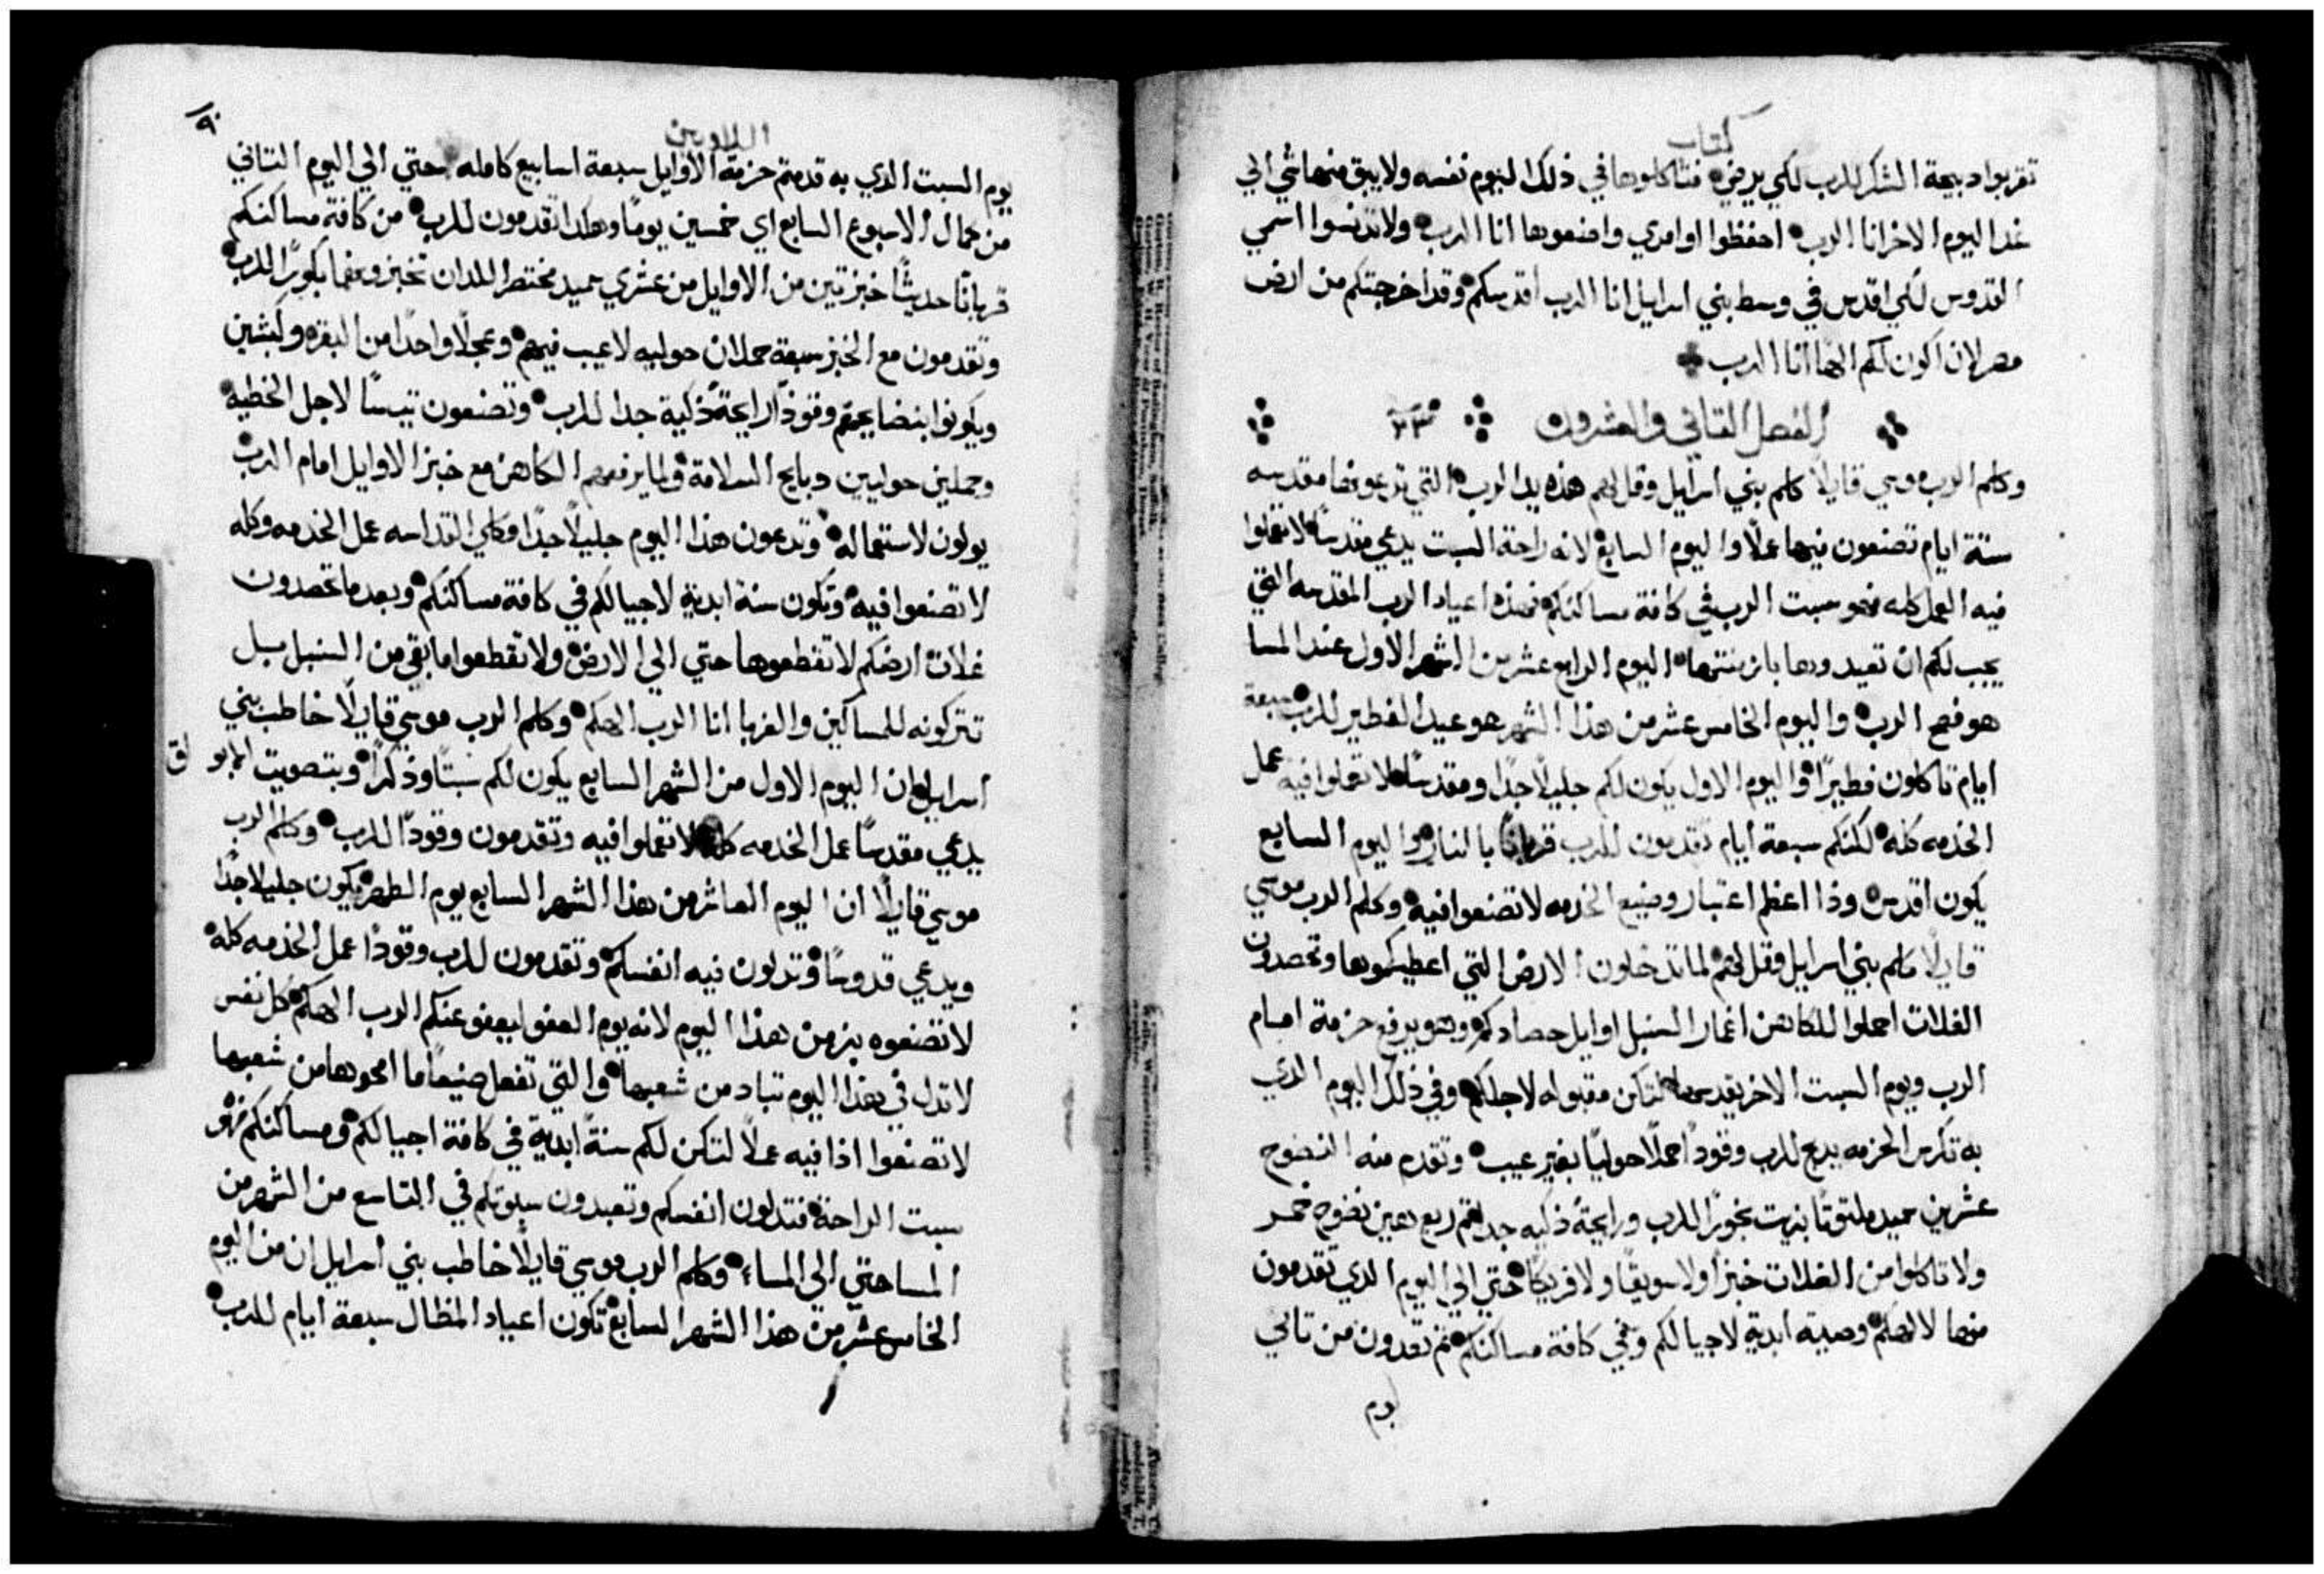 كتاب
تقربوا دبيحة الشكر للرب لكي يرضي فتاكلوها في ذلك اليوم نفسه ولا يبق منها شي الي
غدا اليوم الاخر انا الرب احفظوا اوامري واصنعوها انا الرب ولا تدنسوا اسمي
القدوس لكي اقدس في وسط بني اسرايل انا الرب اقدسكم وقد اخرجتكم من ارض
مصر لان اكون لكم الاها انا الرب
الفصل التاني والعشرون ٢٣
وكلم الرب موسي قايلا كلم بني اسرايل وقل لهم هذه اعياد الرب التي تدعونها مقدسه
ستة ايام تصنعون فيها عملا واليوم السابع لانه راحة السبت يدعي مقدسا لا تعملوا
فيه العمل كله فهو سبت الرب في كافة مساكنكم فهذه اعياد الرب المقدسه التي
يجب لكم ان تعيدوها بازمنتها اليوم الرابع عشر من الشهر الاول عند المسا
هو فصح الرب واليوم الخامس عشر من هذا الشهر هو عيد الفطير للرب سبعة
ايام تاكلون فطيرا واليوم الاول يكون لكم جليلا جدا ومقدسا لا تعملوا فيه عمل
الخدمه كله لكنكم سبعة ايام تقدمون للرب قربانا بالنار واليوم السابع
يكون اقدس وذا اعظم اعتبار وصنيع الخدمه لا تصنعوا فيه وكلم الرب موسي
قايلا كلم بني اسرايل وقل لهم لما تدخلون الارض التي اعطيكموها وتحصدون
الغلات احملوا للكاهن اغمار السنبل اوايل حصادكم وهو يرفع حزمة امام
الرب ويوم السبت الاخر يقدسها لتكن مقبوله لاجلكم وفي ذلك اليوم الدي
به تكرس الحزمه يدبح للرب وقودا حملا حوليا بغير عيب وتقدم منه النضوح
عشرين سميد ملتوتا بزيت بخورا للرب ورايحة ذكيه جدا ثم ربع هين نضوح خمر
ولا تاكلوا من الغلات خبزا ولا سويقا ولا فريكا حتي الي اليوم الدي تقدمون
منها لالهكم وصية ابدية لاجيالكم وفي كافة مساكنكم ثم تعدون من تاني
يوم
اللاويين
٩٠
يوم السبت الدي به قدمتم حزمة الاوايل سبعة اسابيع كامله حتي الي اليوم التاني
من كمال الاسبوع السابع اي خمسين يوما وهكدا تقدمون للرب من كافة مساكنكم
قربانا حديثا خبزتين من الاوايل من عشري سميد مختمر اللدان تخبزوهما بكورا للرب
وتقدمون مع الخبز سبعة حملان حوليه لا عيب فيهم وعجلا واحدا من البقره وكبشين
ويكونوا بنضايحهم وقودا رايحة ذكية جدا للرب وتصنعون تيسا لاجل الخطيه
وحملين حوليين دبايح السلامة ولما يرفعهم الكاهن مع خبز الاوايل امام الرب
يولون لاستعماله وتدعون هذا اليوم جليلا جدا وكلي القداسه عمل الخدمه وكله
لا تصنعوا فيه وتكون سنة ابدية لاجيالكم في كافة مساكنكم وبعد ما تحصدون
غلات ارضكم لا تقطعوها حتي الي الارض ولا تقطعوا ما بقي من السنبل بل
تتركونه للمساكين والغربا انا الرب الهكم وكلم الرب موسي قايلا خاطب بني
اسرايل ان اليوم الاول من الشهر السابع يكون لكم سبتا وذكرا وبتصويت البو
ق
يدعي مقدسا عمل الخدمه كله لا تعملوا فيه وتقدمون وقودا للرب وكلم الرب
موسي قايلا ان اليوم العاشر من هذا الشهر السابع يوم الطهر يكون جليلا جدا
ويدعي قدوسا وتدلون فيه انفسكم وتقدمون للرب وقودا عمل الخدمه كله
لا تصنعوه بزمن هذا اليوم لانه يوم العفو ليعفو عنكم الرب الهكم كل نفس
لا تدل في هذا اليوم تباد من شعبها والتي تفعل صنيعا ما امحوها من شعبها
لا تصنعوا اذا فيه عملا لتكن لكم سنة ابدية في كافة اجيالكم ومساكنكم فهو
سبت الراحة فتدلون انفسكم وتعيدون سبوتكم في التاسع من الشهر من
المسا حتي الي المساء وكلم الرب موسي قايلا خاطب بني اسرايل ان من اليوم
الخامس عشر من هذا الشهر السابع تكون اعياد المظال سبعة ايام للرب